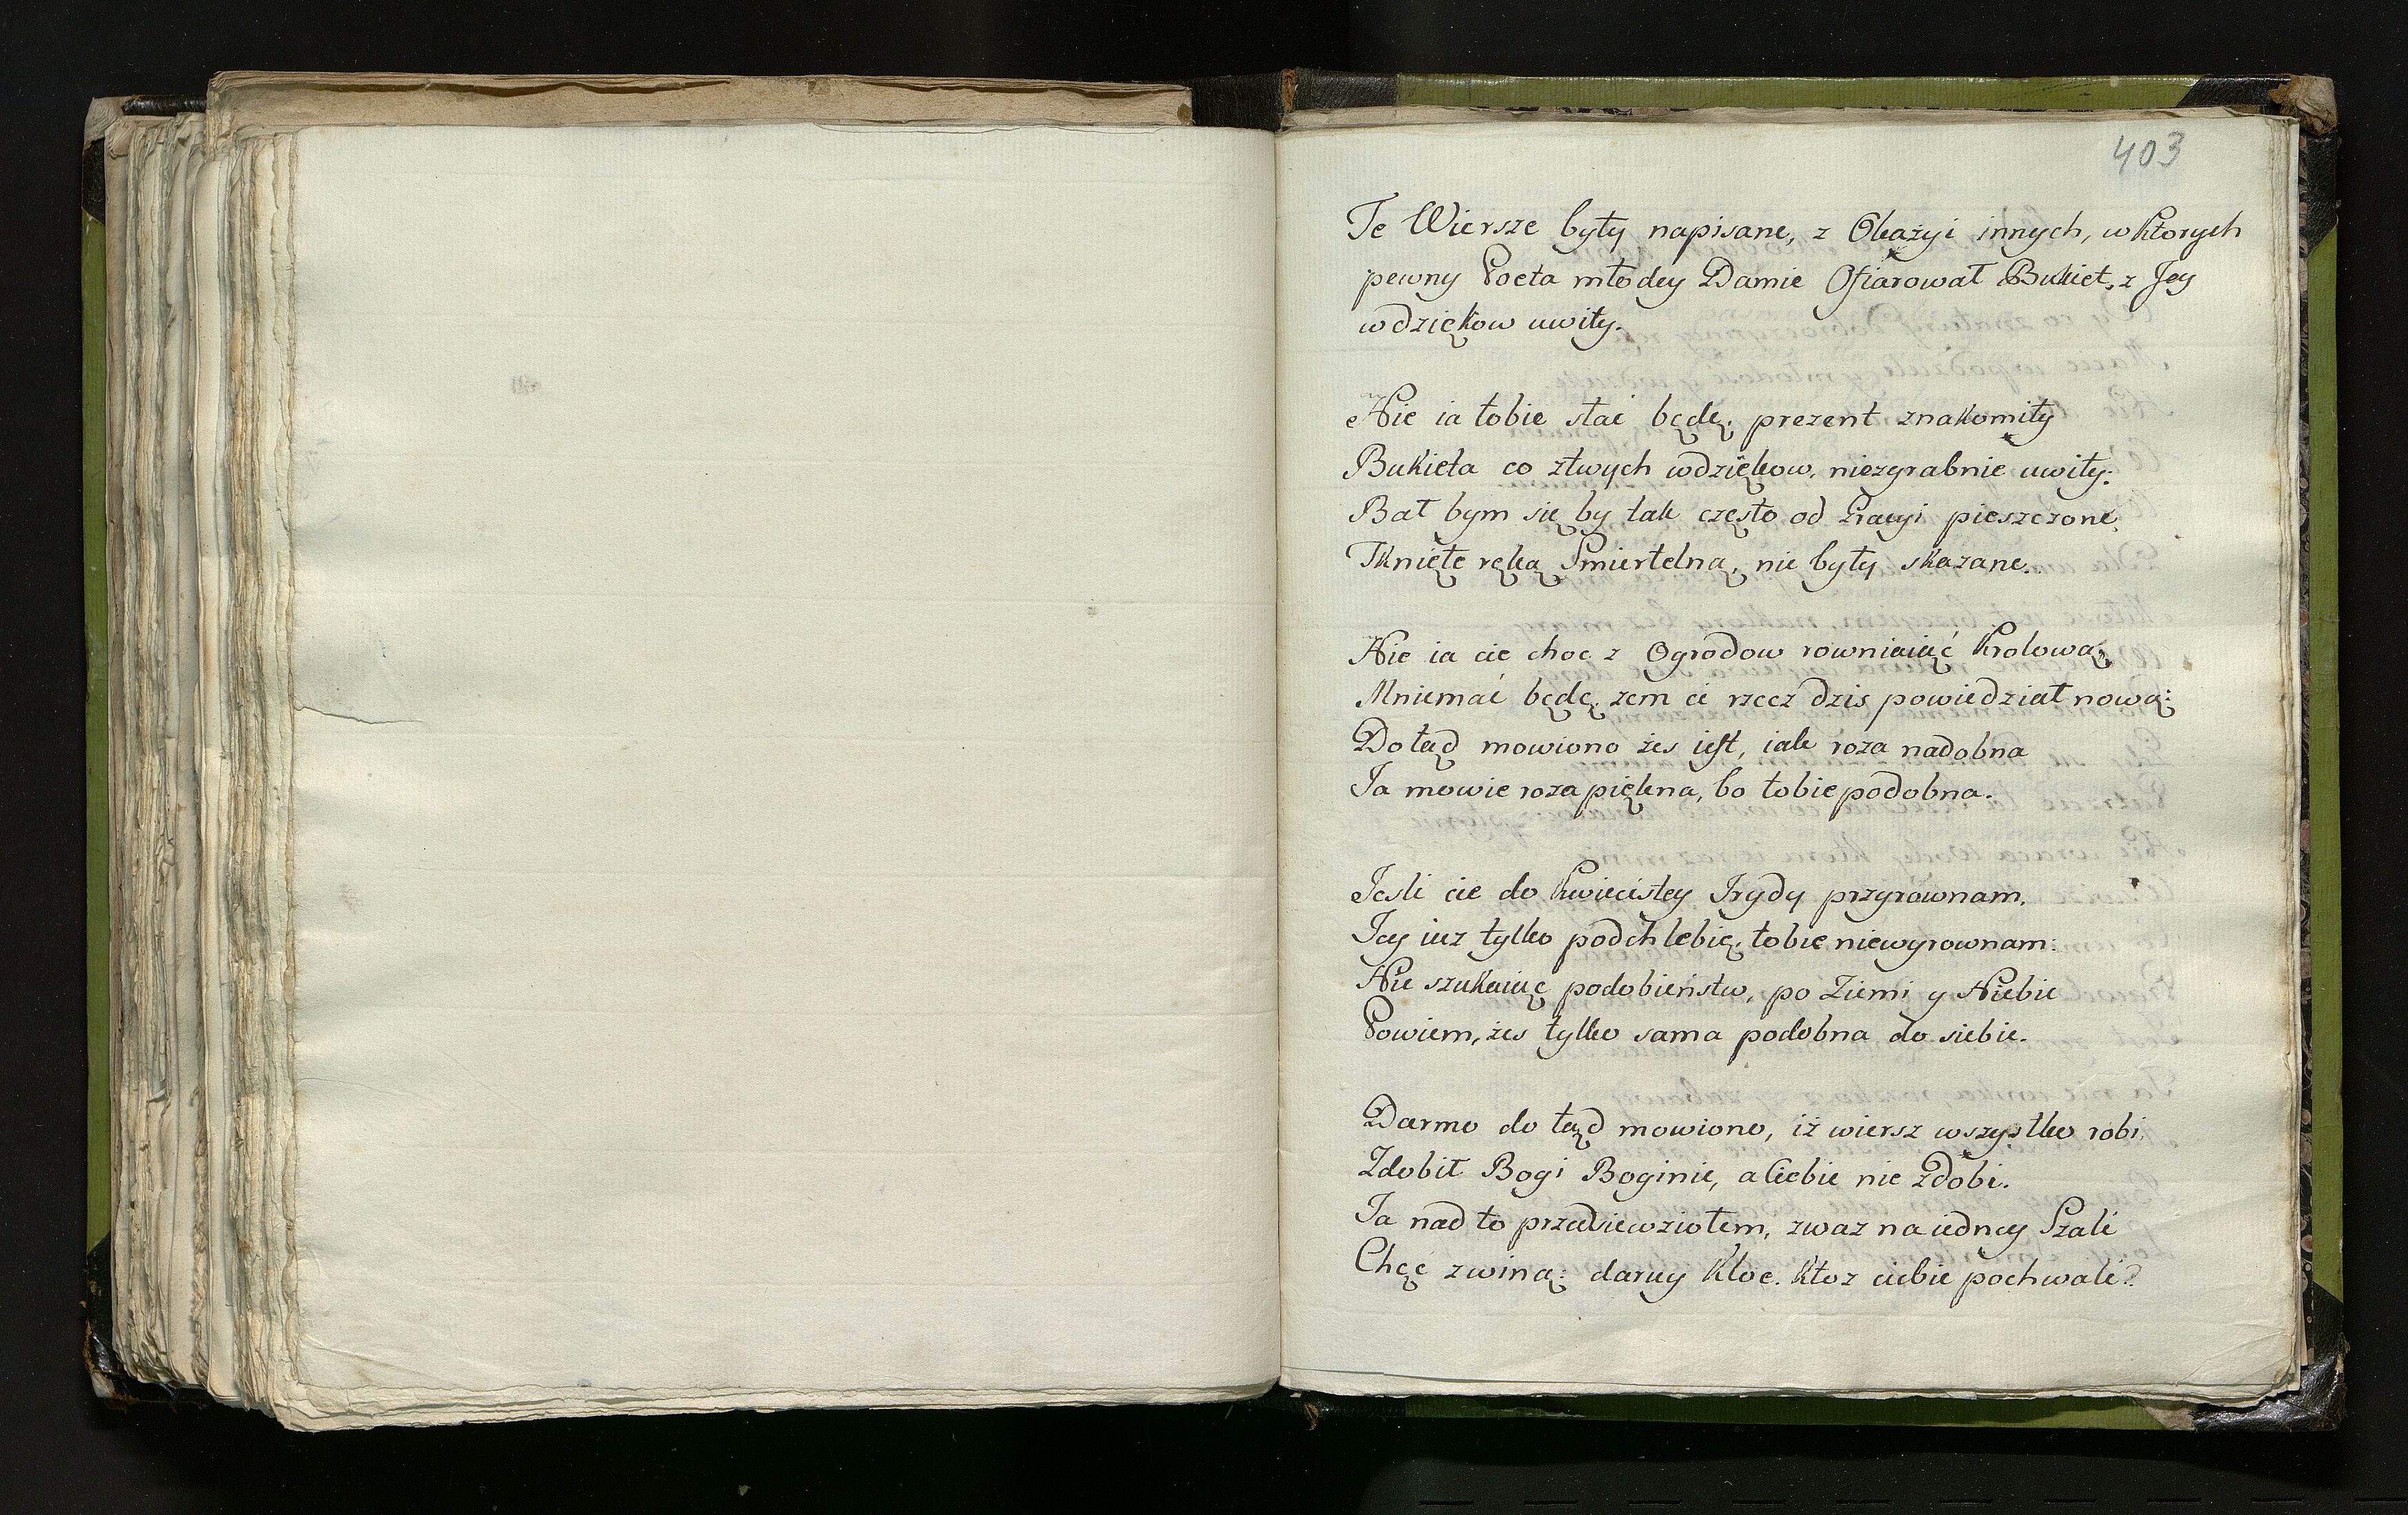 403
Te Wiersze były napisane, z Okażyi innych, w ktorych
pewny Poeta młodey Damie Ofiarował Bukiet, z Jey
wdziękow uwity.
Nie ia tobie stać będę, prezent znakomity
Bukieta co ztwych wdziękow, niezgrabnie uwity:
Bał bym się by tak często od Gracyi pieszczone,
Tknięte ręką Smiertelną, nie były skazane.
Nie ia cie choc z Ogrodow rowniaiąć Krolową,
Mniemać będę, zem ci rzecz dzis powiedział nową:
Do tąd mowiono żes iest, iak roza nadobna
Ja mowie roza piękna, bo tobie podobna.
Jesli cie do Kwiecistey Irydy przyrownam,
Jey iuz tylko podchlebię, tobie niewyrownam:
Nie szukaiąc podobieństw, po Ziemi y Niebie
Powiem, żes tylko sama podobna do siebie.
Darmo do tąd mowiono, iż wiersz wszystko robi,
Zdobił Bogi Boginie, a Ciebie nie zdobi.
Ja nad to przedsiewziołem, zwaz na iedney Szali
Chęć zwiną: daruy Kloe. Ktoz ciebie pochwali?